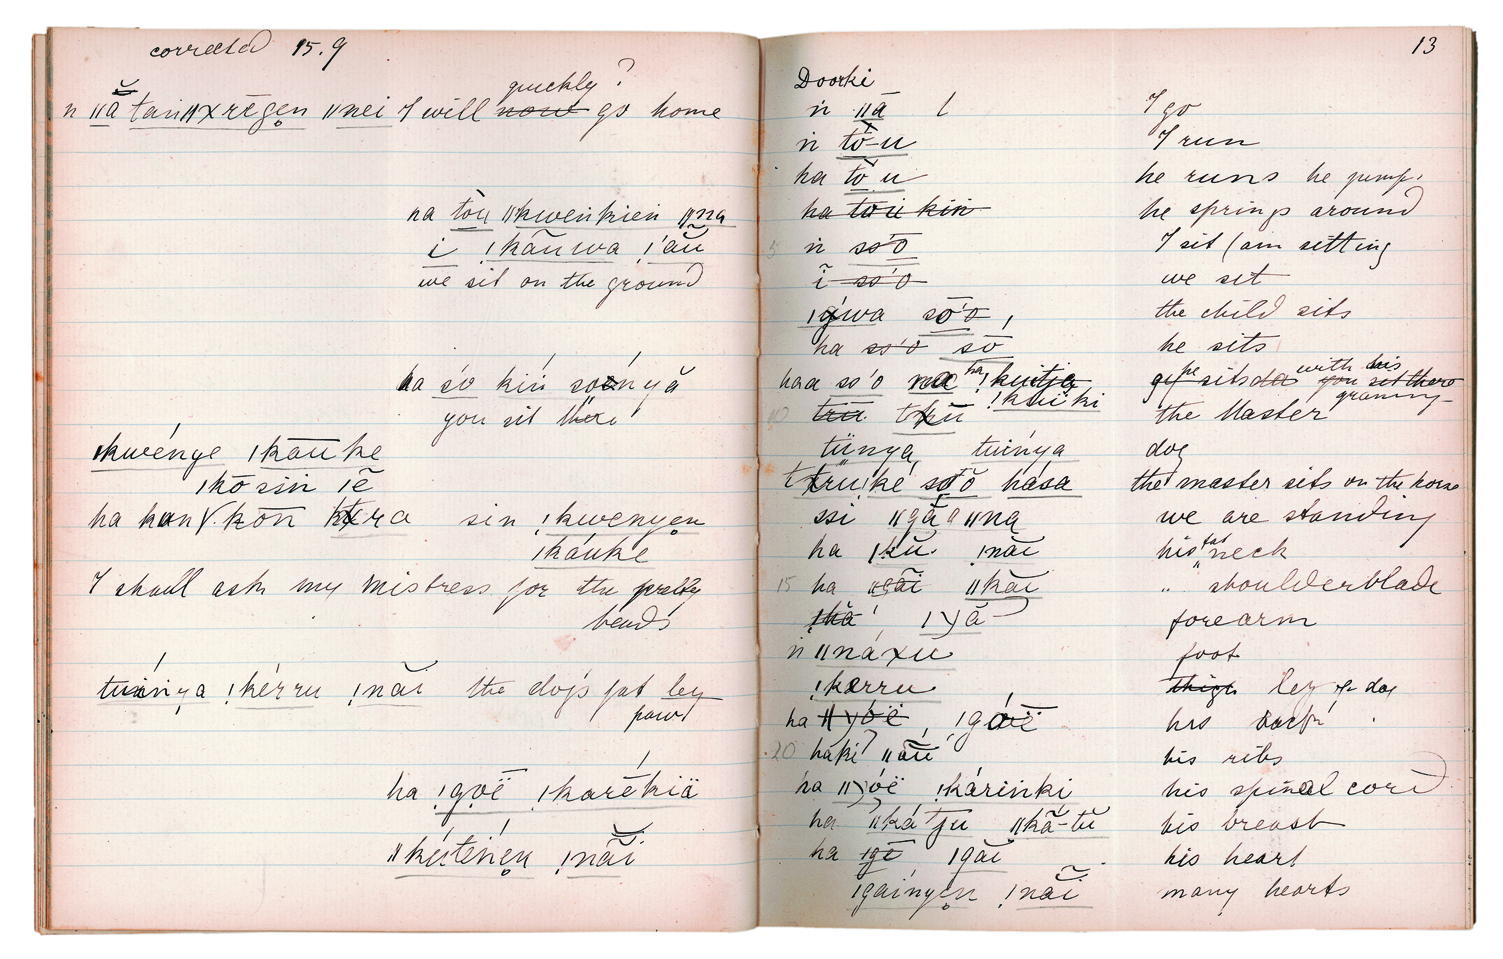 corrected 15.9
quickly?
n ǁă tanǁxrēgen ǁnei I will now go home
ha tòu ǁkwenkien ǁna
i ǃkāuwa ǃãũ
we sit on the ground
ha so kiń soenyă
you sit there
ǀkwénye ǀkāuke
ǀkō sin ǀē
ha kan kōn ra sin ǃkwenyen
ǀkáuke
I shall ask my mistress for the pretty
beads
tuinya ǃkérru ǃnãi the dog's fat leg
paw
ha ǃgoë ǃkarékiä
ǁkúténen ǃnãi
13
Doorki
n ǁā I go
n tò-u I run
ha tò u he runs he jump.
ha tòü kiń he springs around
5 n ss'o I sit (am sitting
ĩ ss'o we sit
ǀgwa sō'o the child sits
ha ss'o sō he sits
haa ss'o ǃkuitja he sits with his you sit there
ǃkuiki graning
10 tru the Master
tünya tuinya dog
truǃké so'ō hása the master sits on the horse
ssi ǁgā ǁna we are standing
ha ǀkū. ǃnãi his fat neck
15 ha ǁgāi ǁkāi " shoulderblade
ǃkā ǀyā forearm
n ǁnáxu foot
ǃkerru thigh leg of dog
ha ǁyoë, ǀgoë his back
20 haki ǁāu his ribs
ha ǁyóë ǃkárinki his spinal cord
ha ǁká tu ǁkã-tu his breast
ha ǀgē ǀgāi his heart
ǀgainyen ǃnãi many hearts